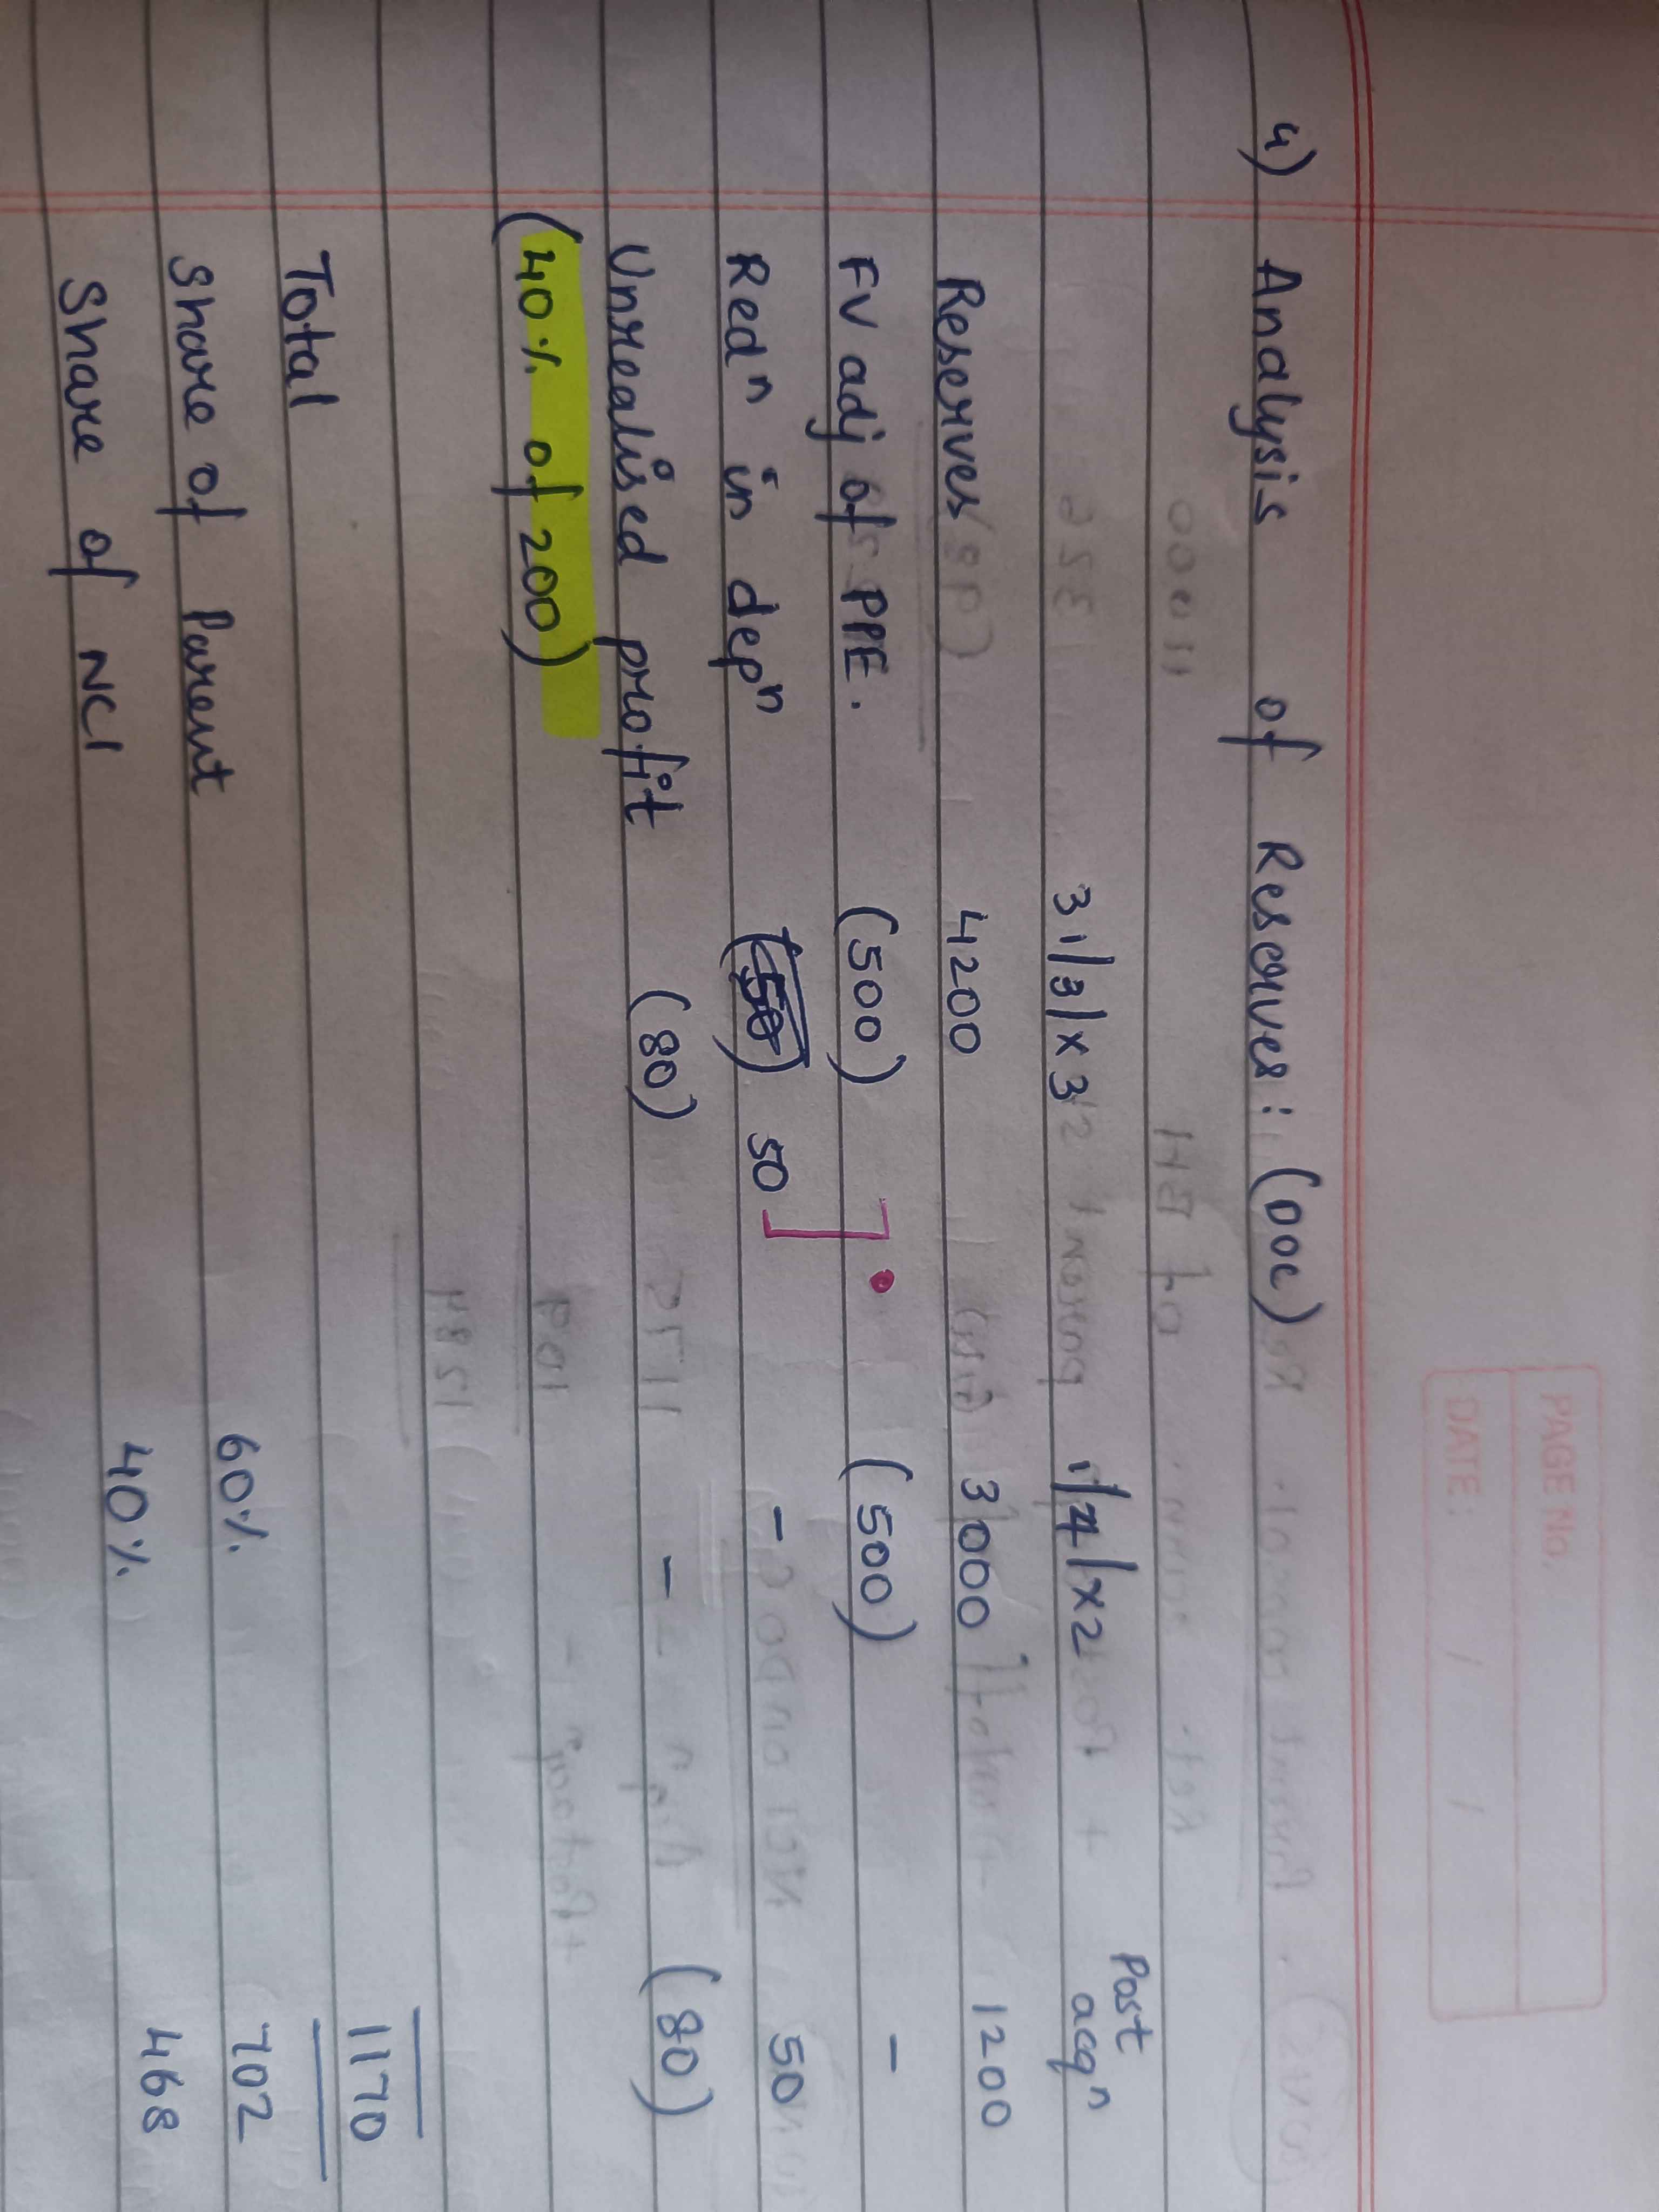 PAGE No.
DATE: / /
4) Analysis of Reserves: (000)
31/3/x3 1/4/x2 Post acqⁿ
Reserves 4200 3000 1200
FV adj of PPE. (500) (500) -
Redⁿ in depⁿ 50 - 50
Unrealised profit (80) - (80)
(40% of 200)
Total 1170
Share of Parent 60% 702
Share of NCI 40% 468